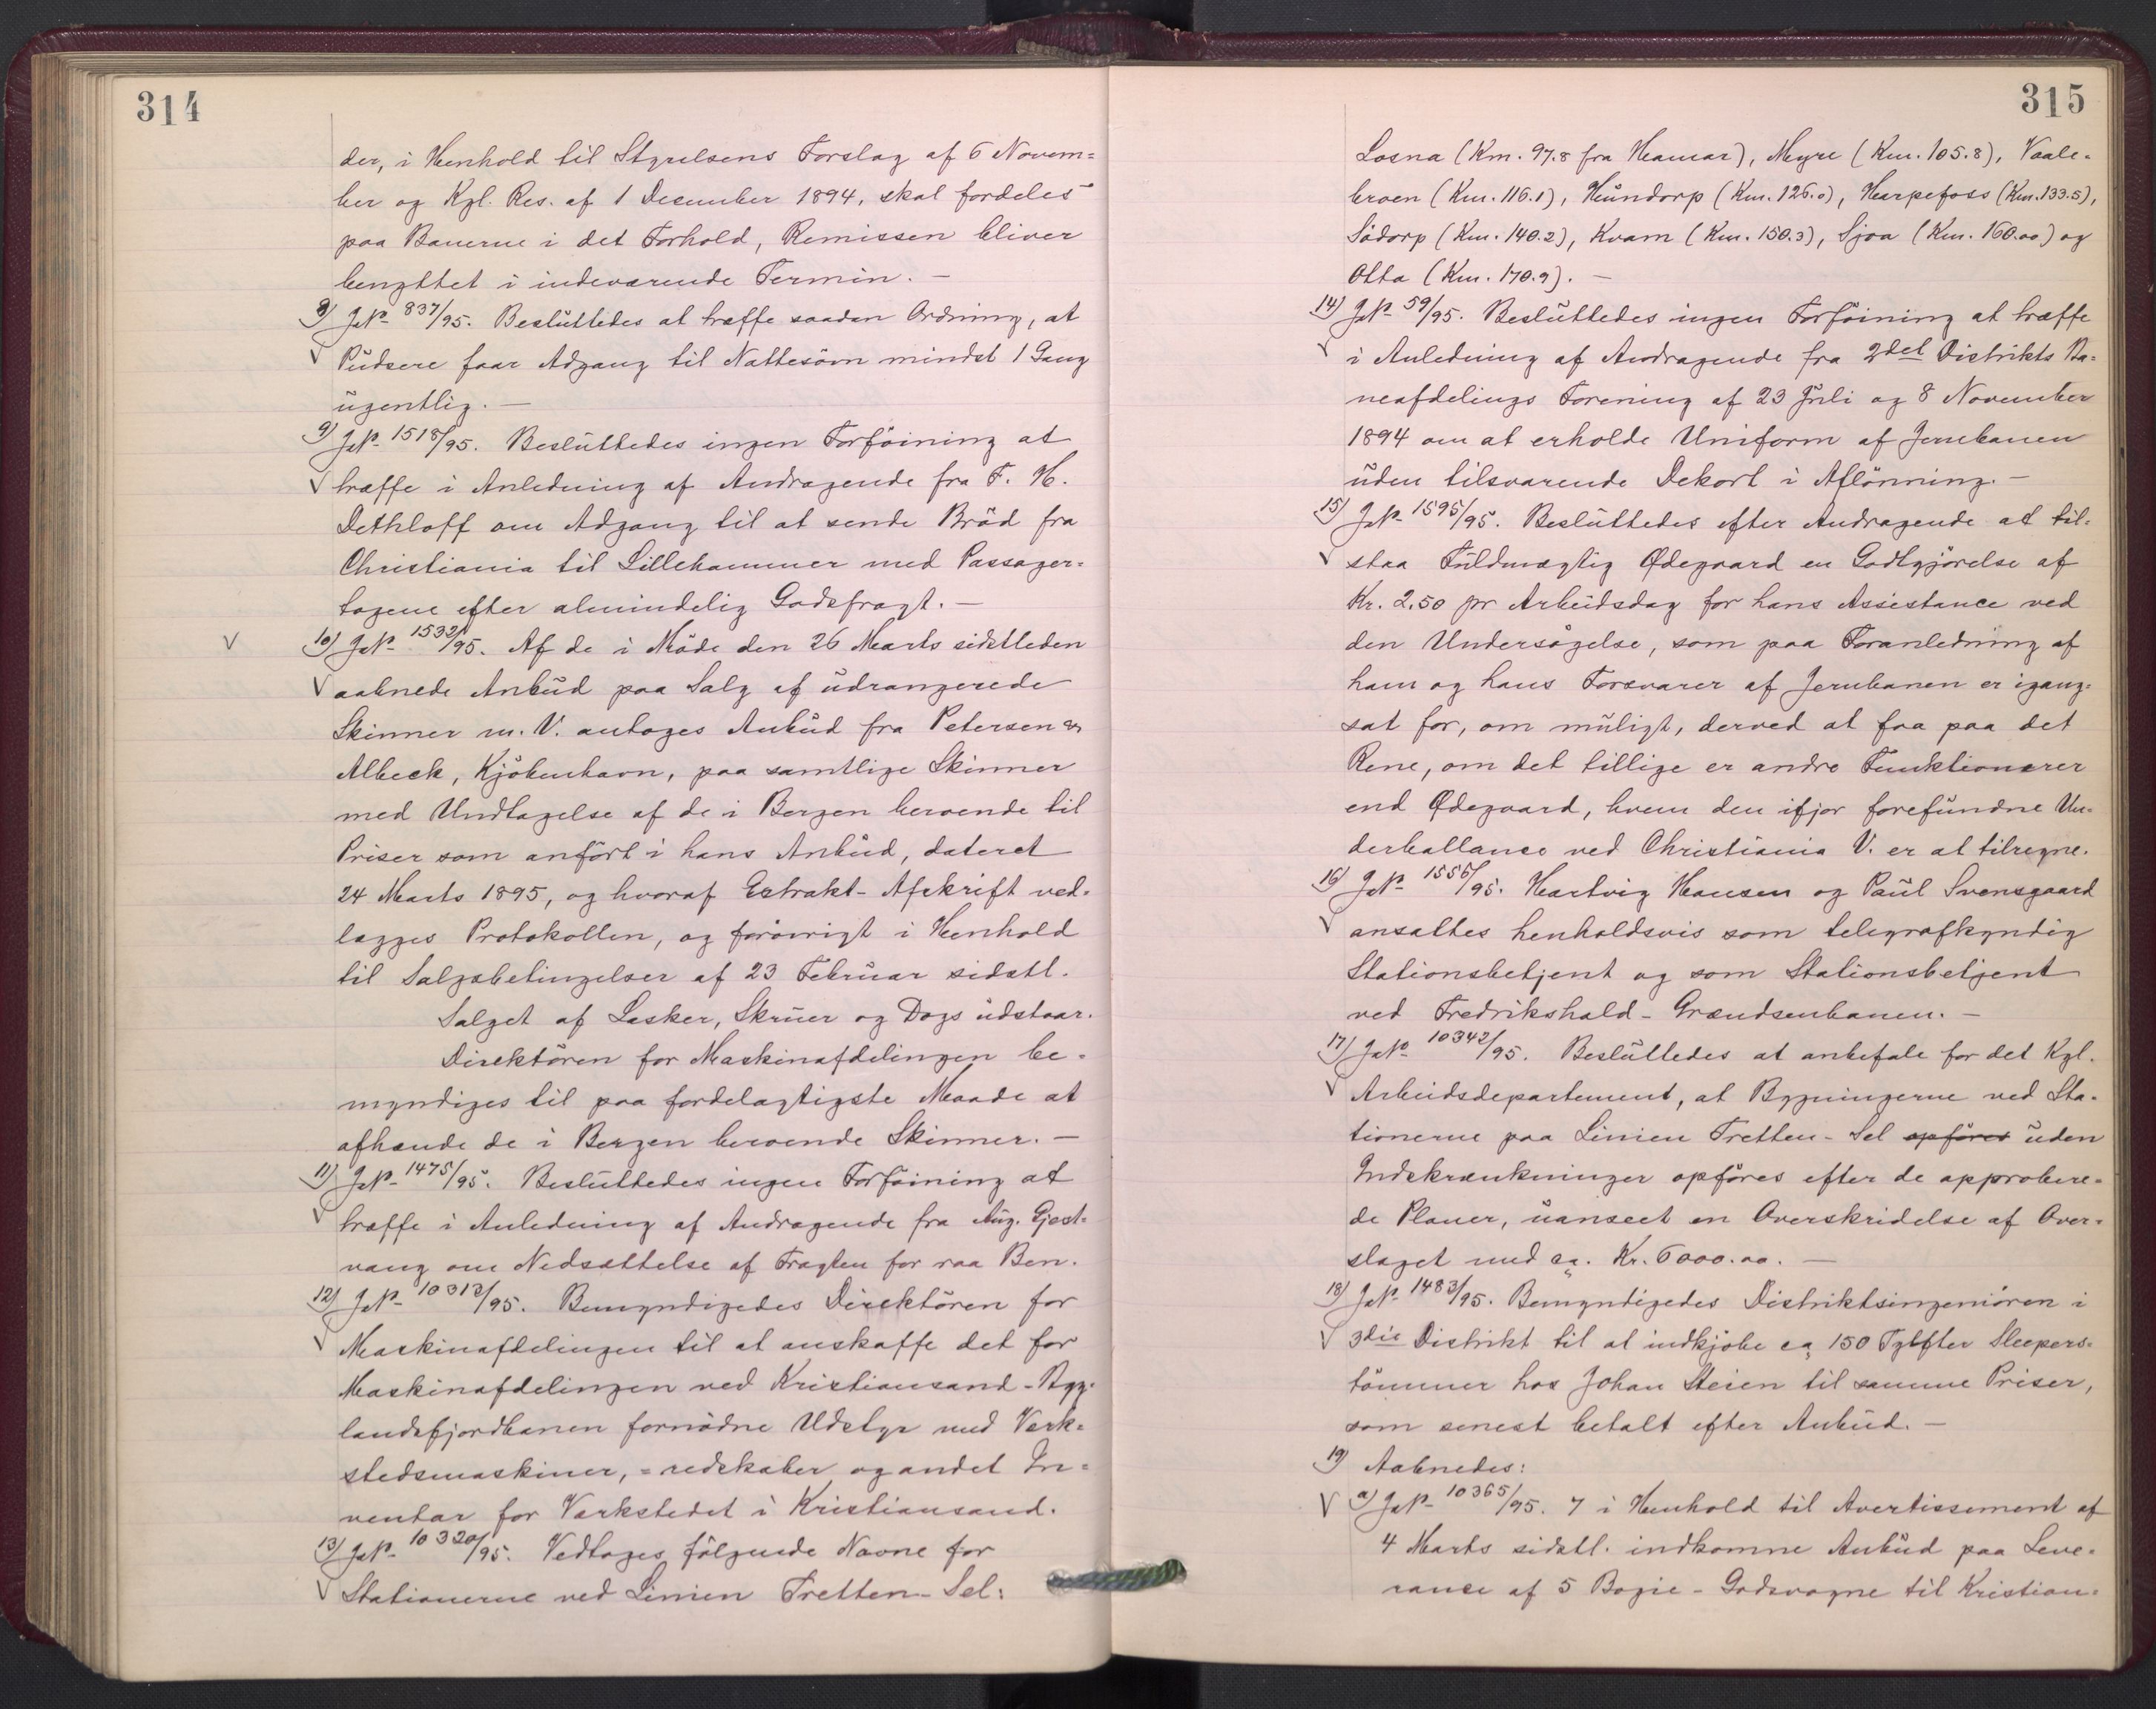 314
der, i Henhold til Styrelsens Forslag af 6 Novem=
ber og Kgl. Res. af 1 Desember 1894, skal fordeles
paa Banerne i det Forhold, Remissen bliver
benyttet i indeværende Termin. —
8) JNo 837/95. Besluttedes at træffe saadan Ordning, at
Pudsere faar Adgang til Nattesövn mindst 1 Gang
ugentlig. —
9) JNo 1518/95. Besluttedes ingen Forföining at
træffe i Anledning af Andragende fra F. H.
Dethloff om Adgang til at sende Bröd fra
Christiania til Lillehammer med Passager=
togene efter almindelig Godsfragt. —
10) JNo 1532/95. Af de i Möde den 26 Marts sidstleden
aabnede Anbud paa Salg af udrangerede
Skinner m. V. antoges Anbud fra Petersen &
Albeck, Kjöbenhavn, paa samtlige Skinner
med Undtagelse af de i Bergen beroende til
Priser som anfört i hans Anbud, dateret
24 Marts 1895, og hvoraf Extrakt-Afskrift ved=
lægges Protokollen, og forövrigt i Henhold
til Salgsbetingelser af 23 Februar sidstl.
Salget af Lasker, Skruer og Dogs udstaar.
Direktören for Maskinafdelingen be=
myndiges til paa fordelagtigste Maade at
afhænde de i Bergen beroende Skinner. —
11) JNo 1475/95. Besluttedes ingen Forföining at
træffe i Anledning af Andragende fra Aug. Gjest=
vang om Nedsættelse af Fragten for raa Ben.
12) JNo 10313/95. Bemyndigedes Direktören for
Maskinafdelingen til at anskaffe det for
Maskinafdelingen ved Kristiansand-Byg=
landsfjordbanen fornödne Udstyr med Værk=
stedsmaskiner, =redskaber og andet In=
ventar for Værkstedet i Kristiansand.
13) JNo 10320/95. Vedtoges fölgende Navne for
Stationerne ved Linien Tretten-Sel:
315
Losna (Km. 97.8 fra Hamar), Myre (Km. 105.8), Vaale=
broen (Km. 116.1), Hundorp (Km. 126.0), Harpefoss (Km. 133.5),
Södorp (Km. 140.2), Kvam (Km. 150.3), Sjoa (Km. 160.00) og
Otta (Km. 170.9). —
14) JNo 59/95. Besluttedes ingen Forföining at træffe
i Anledning af Andragende fra 2det Distrikts Ba=
neafdelings Forening af 23 Juli og 8 November
1894 om at erholde Uniform af Jernbanen
uden tilsvarende Dekort i Aflönning. —
15) JNo 1595/95. Besluttedes efter Andragende at til=
staa Fuldmægtig Ødegaard en Godtgjörelse af
Kr. 2.50 pr Arbeidsdag for hans Assistance ved
den Undersögelse, som paa Foranledning af
ham og hans Forsvarer af Jernbanen er igang=
sat for, om muligt, derved at faa paa det
Rene, om det tillige er andre Funktionærer
end Ødegaard, hvem den ifjor forefundne Un=
derballance ved Christiania V. er at tilregne.
16) JNo 1556/95. Hartvig Hansen og Paul Svensgaard
ansattes henholdsvis som telegrafkyndig
Stationsbetjent og som Stationsbetjent
ved Fredrikshald-Grændsenbanen. —
17) JNo 10342/95. Besluttedes at anbefale for det Kgl.
Arbeidsdepartement, at Bygningerne ved Sta=
tionerne paa Linien Tretten-Sel opföres uden
Indskrænkninger opföres efter de approbere=
de Planer, uanseet en Overskridelse af Over=
slaget med ca. Kr. 6000.00. —
18) JNo 1483/95. Bemyndigedes Distriktsingeniören i
3die Distrikt til at indkjöbe ca 150 Tylfter Sleepers=
tömmer hos Johan Steien til samme Priser,
som senest betalt efter Anbud. —
19) Aabnedes:
a) JNo 10365/95. 7 i Henhold til Avertissement af
4 Marts sidstl. indkomne Anbud paa Leve=
rance af 5 Bogie-Godsvogne til Kristian=